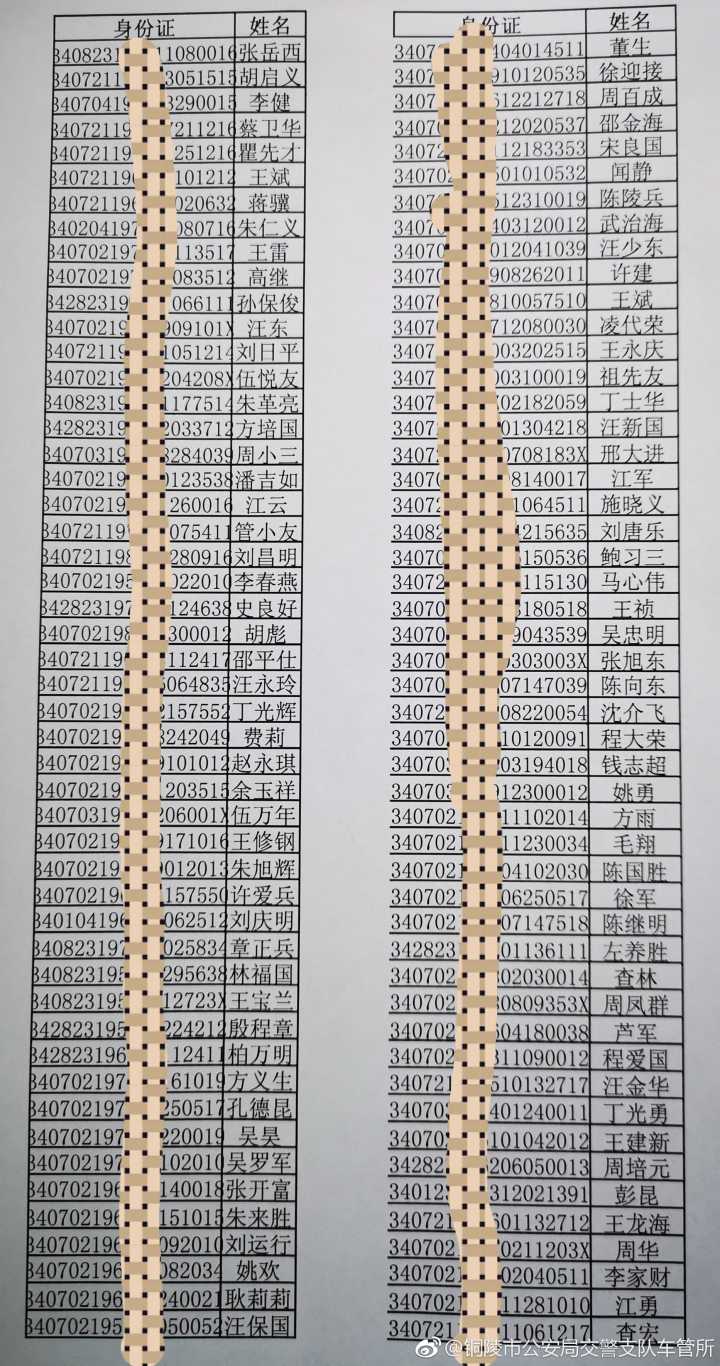 身份证 姓名
3408231 11080016 张岳西
34072111 3051515 胡启义
34070419 3290015 李健
34072119 7211216 蔡卫华
34072119 251216 瞿先才
340721196 101212 王斌
340721196 020632 蒋骥
340204197 080716 朱仁义
340702197 113517 王雷
340702197 083512 高继
342823197 066111 孙保俊
34070219 909101X 汪东
34072119 1051214 刘日平
34070219 204208X 伍悦友
34082319 1177514 朱革亮
34282319 2033712 方培国
34070319 3284039 周小三
34070219 0123538 潘吉如
34070219 260016 江云
340721197 075411 管小友
340721198 280916 刘昌明
340702195 022010 李春燕
342823197 124638 史良好
340702198 300012 胡彪
34072119 112417 邵平仕
34072119 5064835 汪永玲
34070219 2157552 丁光辉
34070219 3242049 费莉
34070219 9101012 赵永琪
34070219 1203515 余玉祥
34070319 206001X 伍万年
34070219 9171016 王修钢
34070219 0012013 朱旭辉
340702196 157550 许爱兵
340104196 062512 刘庆明
340823197 025834 章正兵
340823195 295638 林福国
340823195 12723X 王宝兰
342823195 224212 殷程章
342823196 112411 柏万明
340702197 161019 方义生
340702197 250517 孔德昆
340702197 220019 吴昊
340702197 102010 吴罗军
340702196 140018 张开富
340702196 151015 朱来胜
340702196 092010 刘运行
340702196 082034 姚欢
340702196 240021 耿莉莉
340702195 050052 汪保国
身份证 姓名
3407 404014511 董生
3407 910120535 徐迎接
3407 612212718 周百成
3407 212020537 邵金海
3407 112183353 宋良国
34070 501010532 闻静
3407 512310019 陈陵兵
3407 403120012 武治海
3407 012041039 汪少东
3407 908262011 许建
3407 810057510 王斌
3407 712080030 凌代荣
3407 003202515 王永庆
3407 003100019 祖先友
3407 702182059 丁士华
3407 01304218 汪新国
3407 0708183X 邢大进
3407 8140017 江军
3407 1064511 施晓义
3408 215635 刘唐乐
3407 150536 鲍习三
3407 115130 马心伟
3407 3180518 王祯
3407 9043539 吴忠明
3407 0303003X 张旭东
34070 07147039 陈向东
34072 08220054 沈介飞
34070 10120091 程大荣
34070 203194018 钱志超
34070 912300012 姚勇
340702 11102014 方雨
340702 11230034 毛翔
340702 04102030 陈国胜
340702 06250517 徐军
340702 07147518 陈继明
342823 01136111 左养胜
34070 02030014 查林
34070 0809353X 周凤群
34070 504180038 芦军
34070 311090012 程爱国
34072 510132717 汪金华
34070 401240011 丁光勇
34070 101042012 王建新
34282 206050013 周培元
34012 312021391 彭昆
34072 601132712 王龙海
34070 0211203X 周华
34070 02040511 李家财
34070 11281010 江勇
34072 11061217 查宏
@铜陵市公安局交警支队车管所